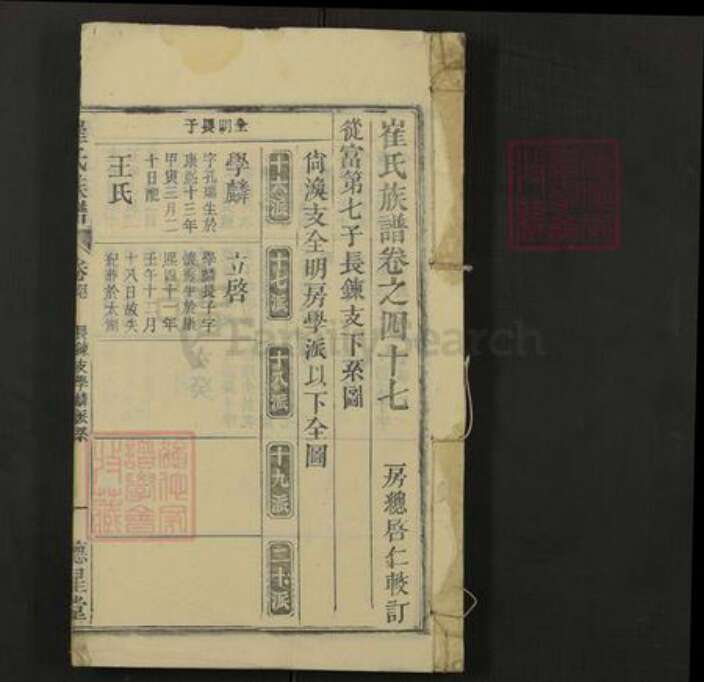 崔氏族譜卷之四十七
房總啓仁較訂
從富第七子長鍊支下系圖
尚渙支全明房學派以下全圖
十六派
十七派
十八派
十九派
二十派
全明長子
學麟
字孔瑞生於
康熙十三年
甲寅三月二
十日酉
王氏
立啓
學麟長子字
生於康
熙四十一年
壬午十二月
十八日故失
配葬於太湖
崔氏族譜
長鍊支學麟派系
一
德星堂
FamilySearch